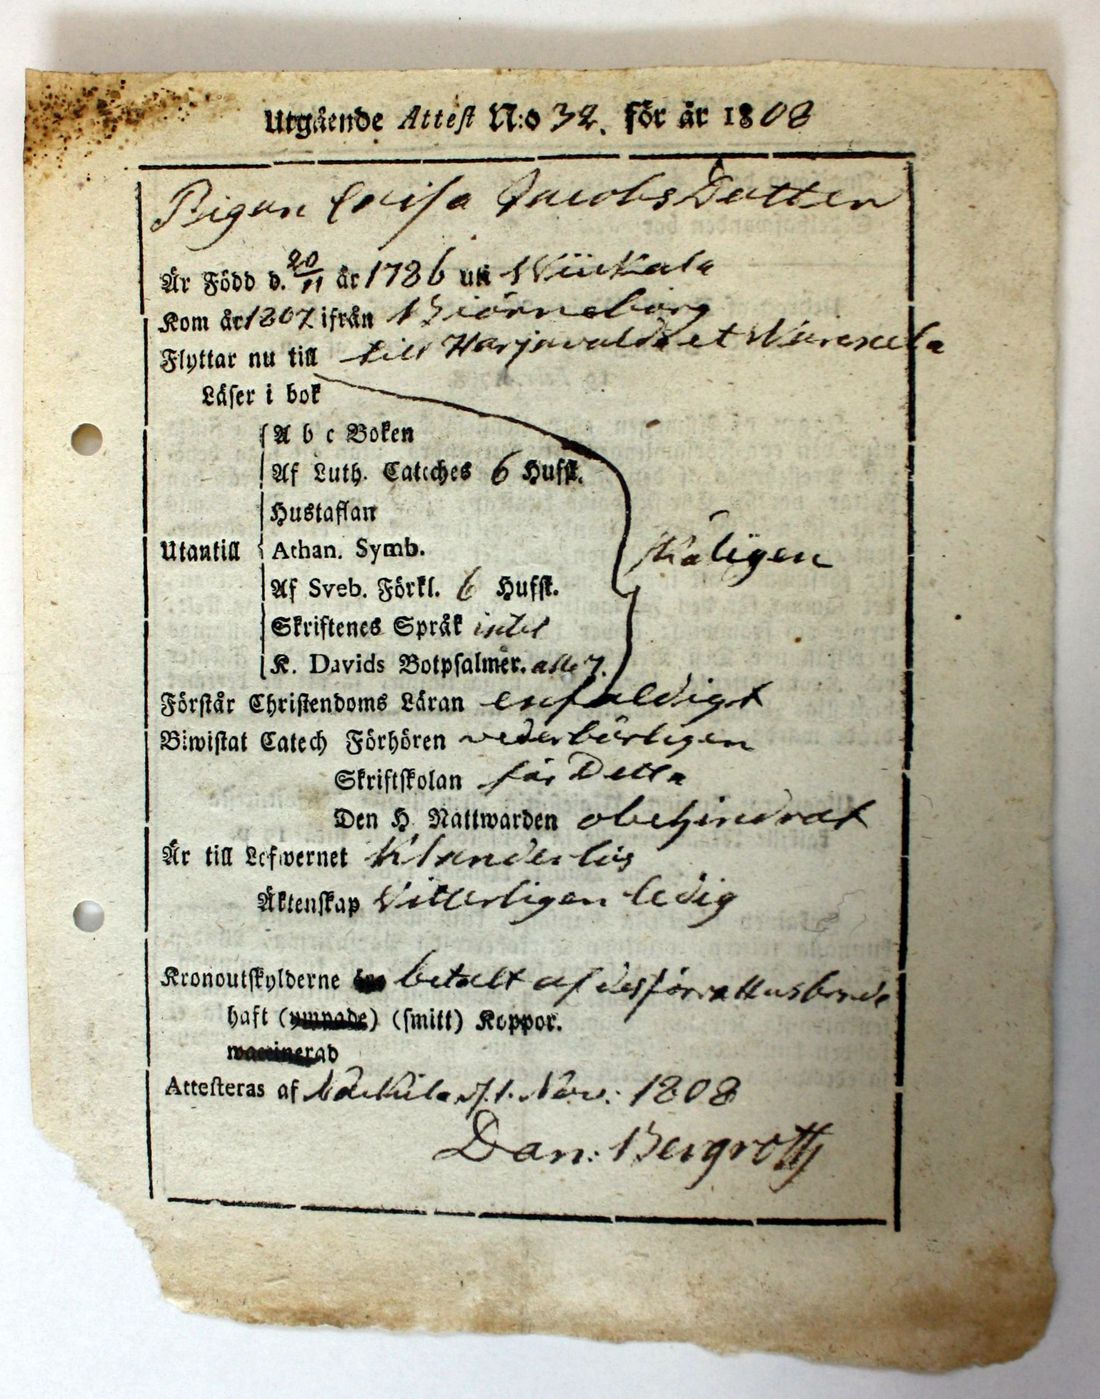 Utgående Attest N:o 32. för år 1808
Pigan Lovisa Jacobs Dotter
Är Född d. 20/11 år 1786 uti Wiikala
Kom år 1807 ifrån Biörneborg
Flyttar nu till till Harjavalda et
Läser i bok
A b c Boken
Af Luth. Cateches 6 Hufst.
Hustaflan
Utantill Athan. Symb. skäligen
Af Sveb. Förkl. 6 Hufst.
Skriftenes Språk intet
K. Davids Botpsalmer. alle 7.
Förstår Christendoms Läran enfaldigt
Biwistat Catech Förhören vederbörligen
Skriftskolan för Detta
Den H. Nattwarden obehindrat
Är till Lefwernet Klanderlös
Äktenskap Vitterligen ledig
Kronoutskylderne betalt af des förra Husbonde
haft (ympade) (smitt) Koppor.
waccinerad
Attesteras af d. 1. Nov: 1808
Dan: Bergroth